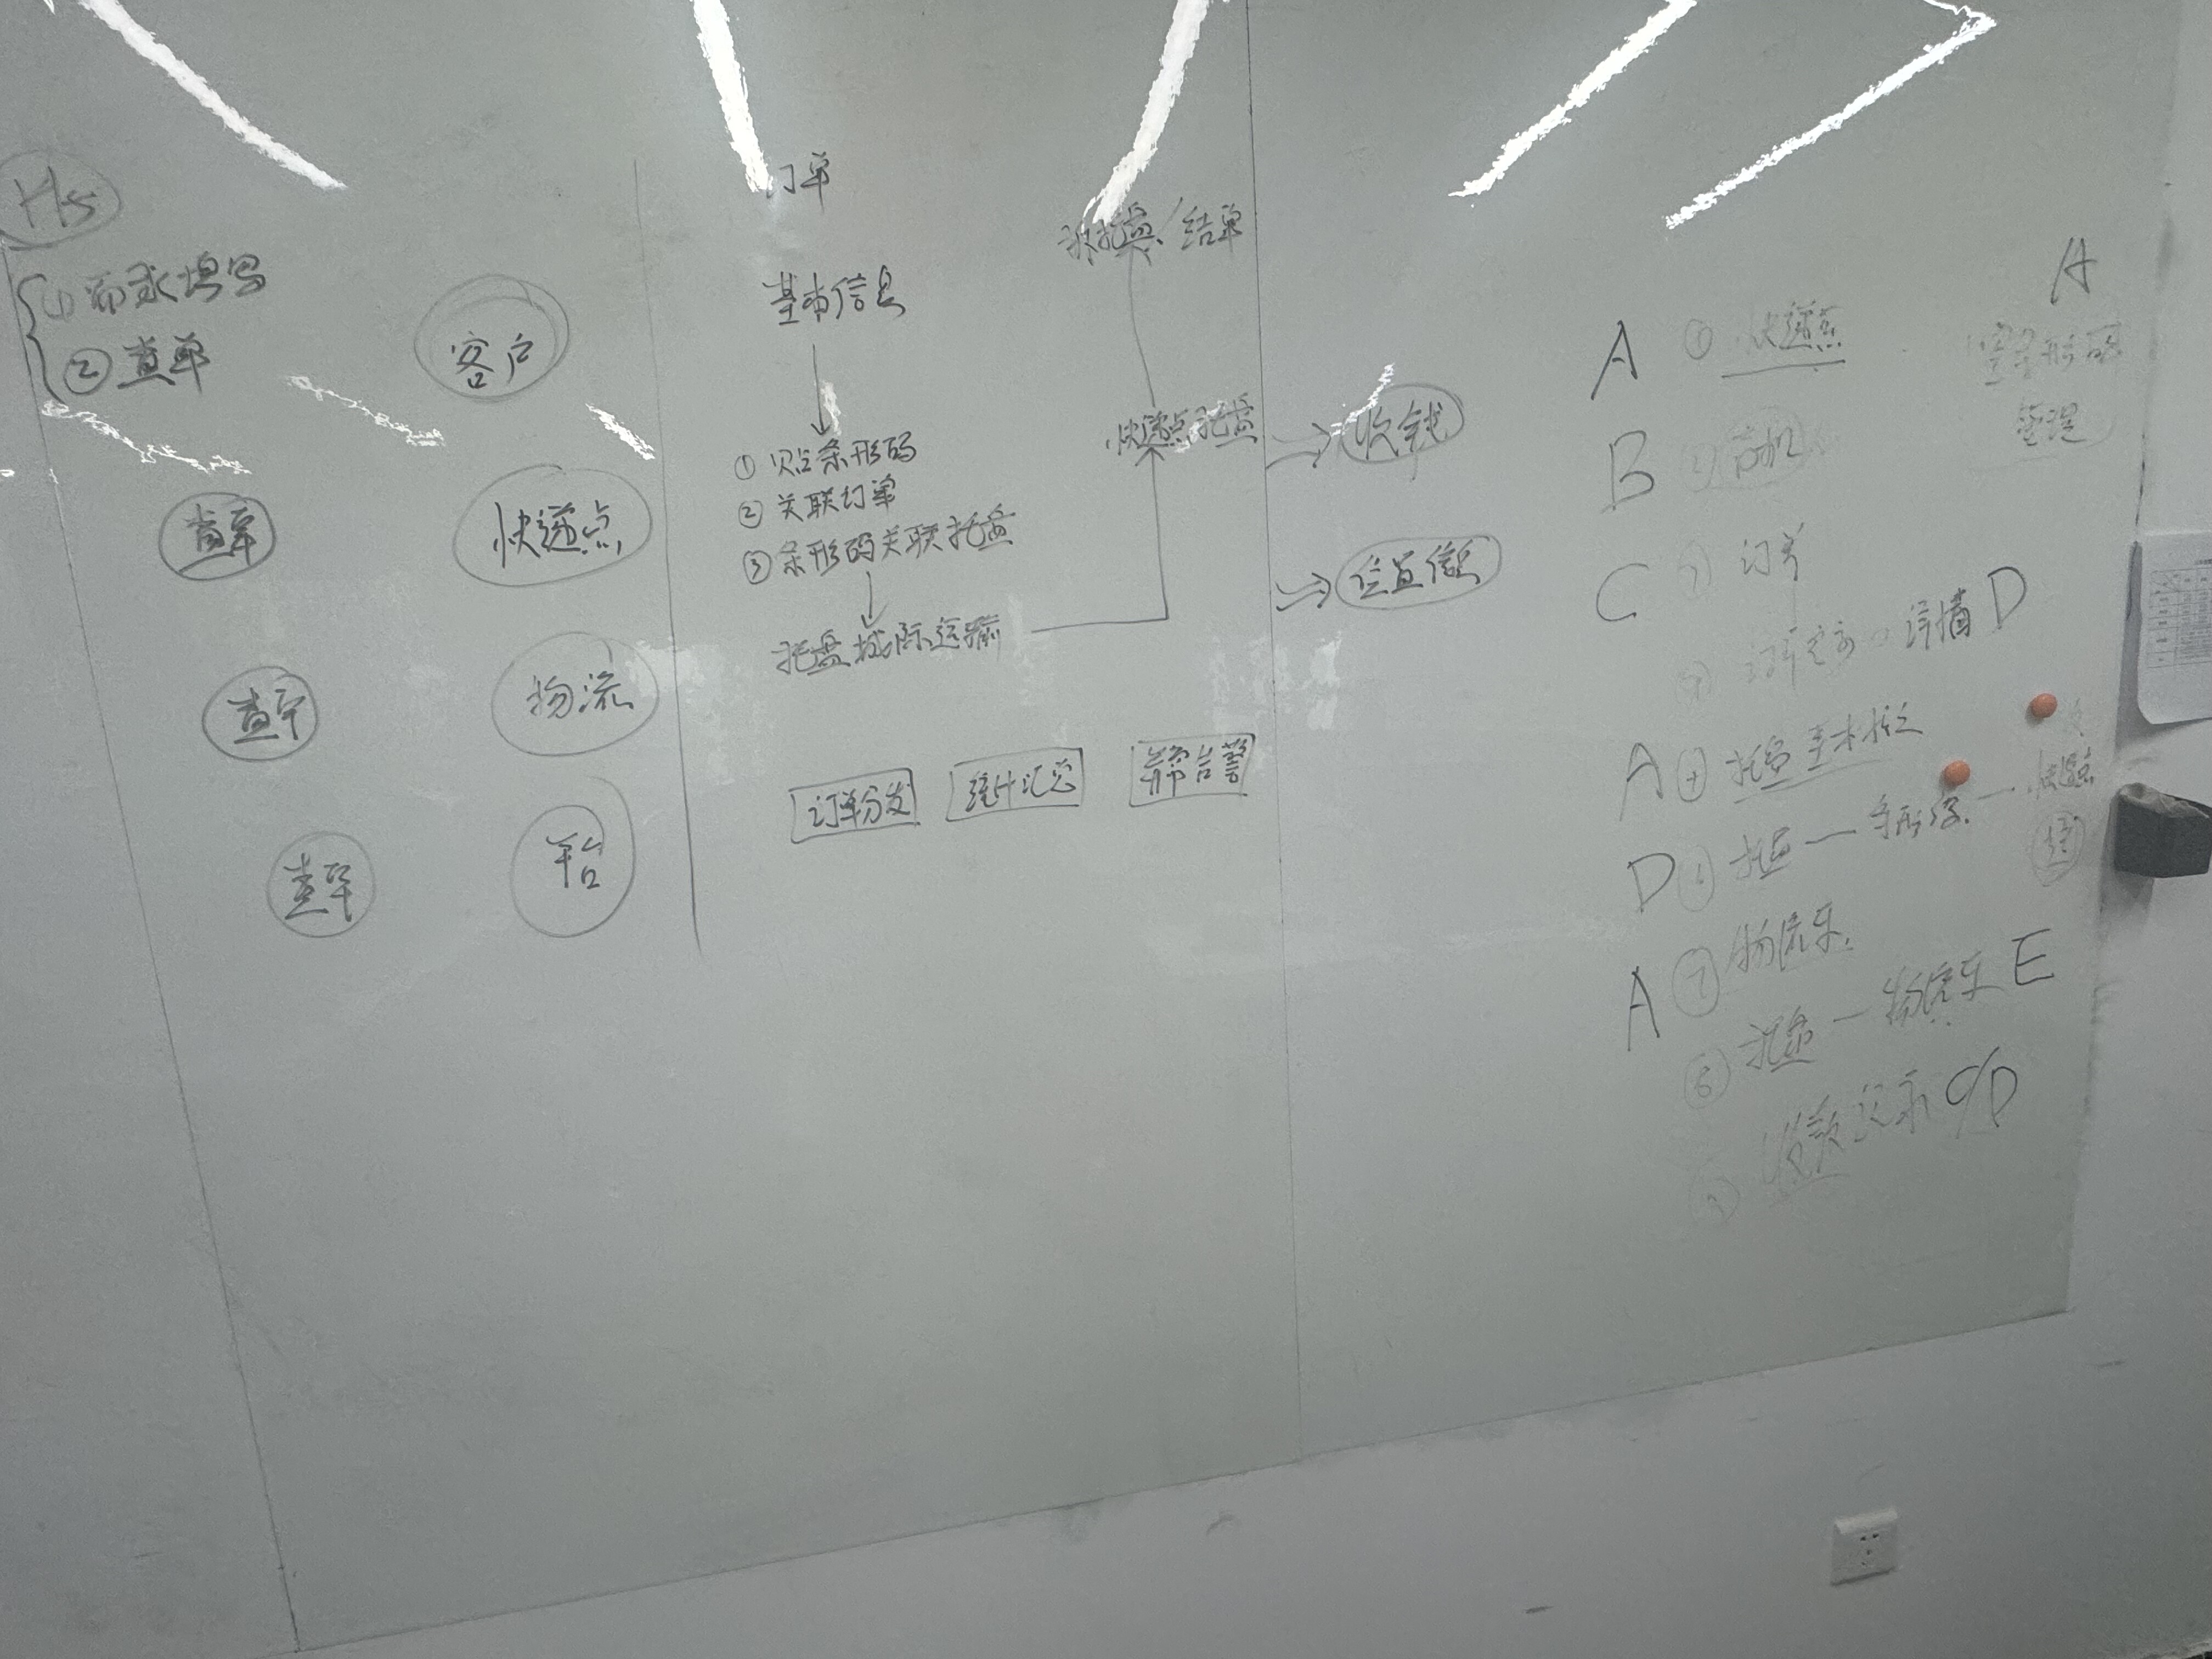 H5
① 需求填写
② 查单
客户
查单
快递点
查单
物流
查单
平台
订单
基本信息
① 贴条形码
② 关联订单
③ 条形码关联托盘
托盘城际运输
快递点托盘
托盘/结单
订单分发
统计汇总
异常告警
收钱
位置信息
A ① 快递点
A
条形码
管理
B 商机
C 订单
详情 D
A 托盘基本
D 托盘 — 条形码 — 快递点
A ⑦ 物流车
⑧ 托盘 — 物流车 E
收款 C/D